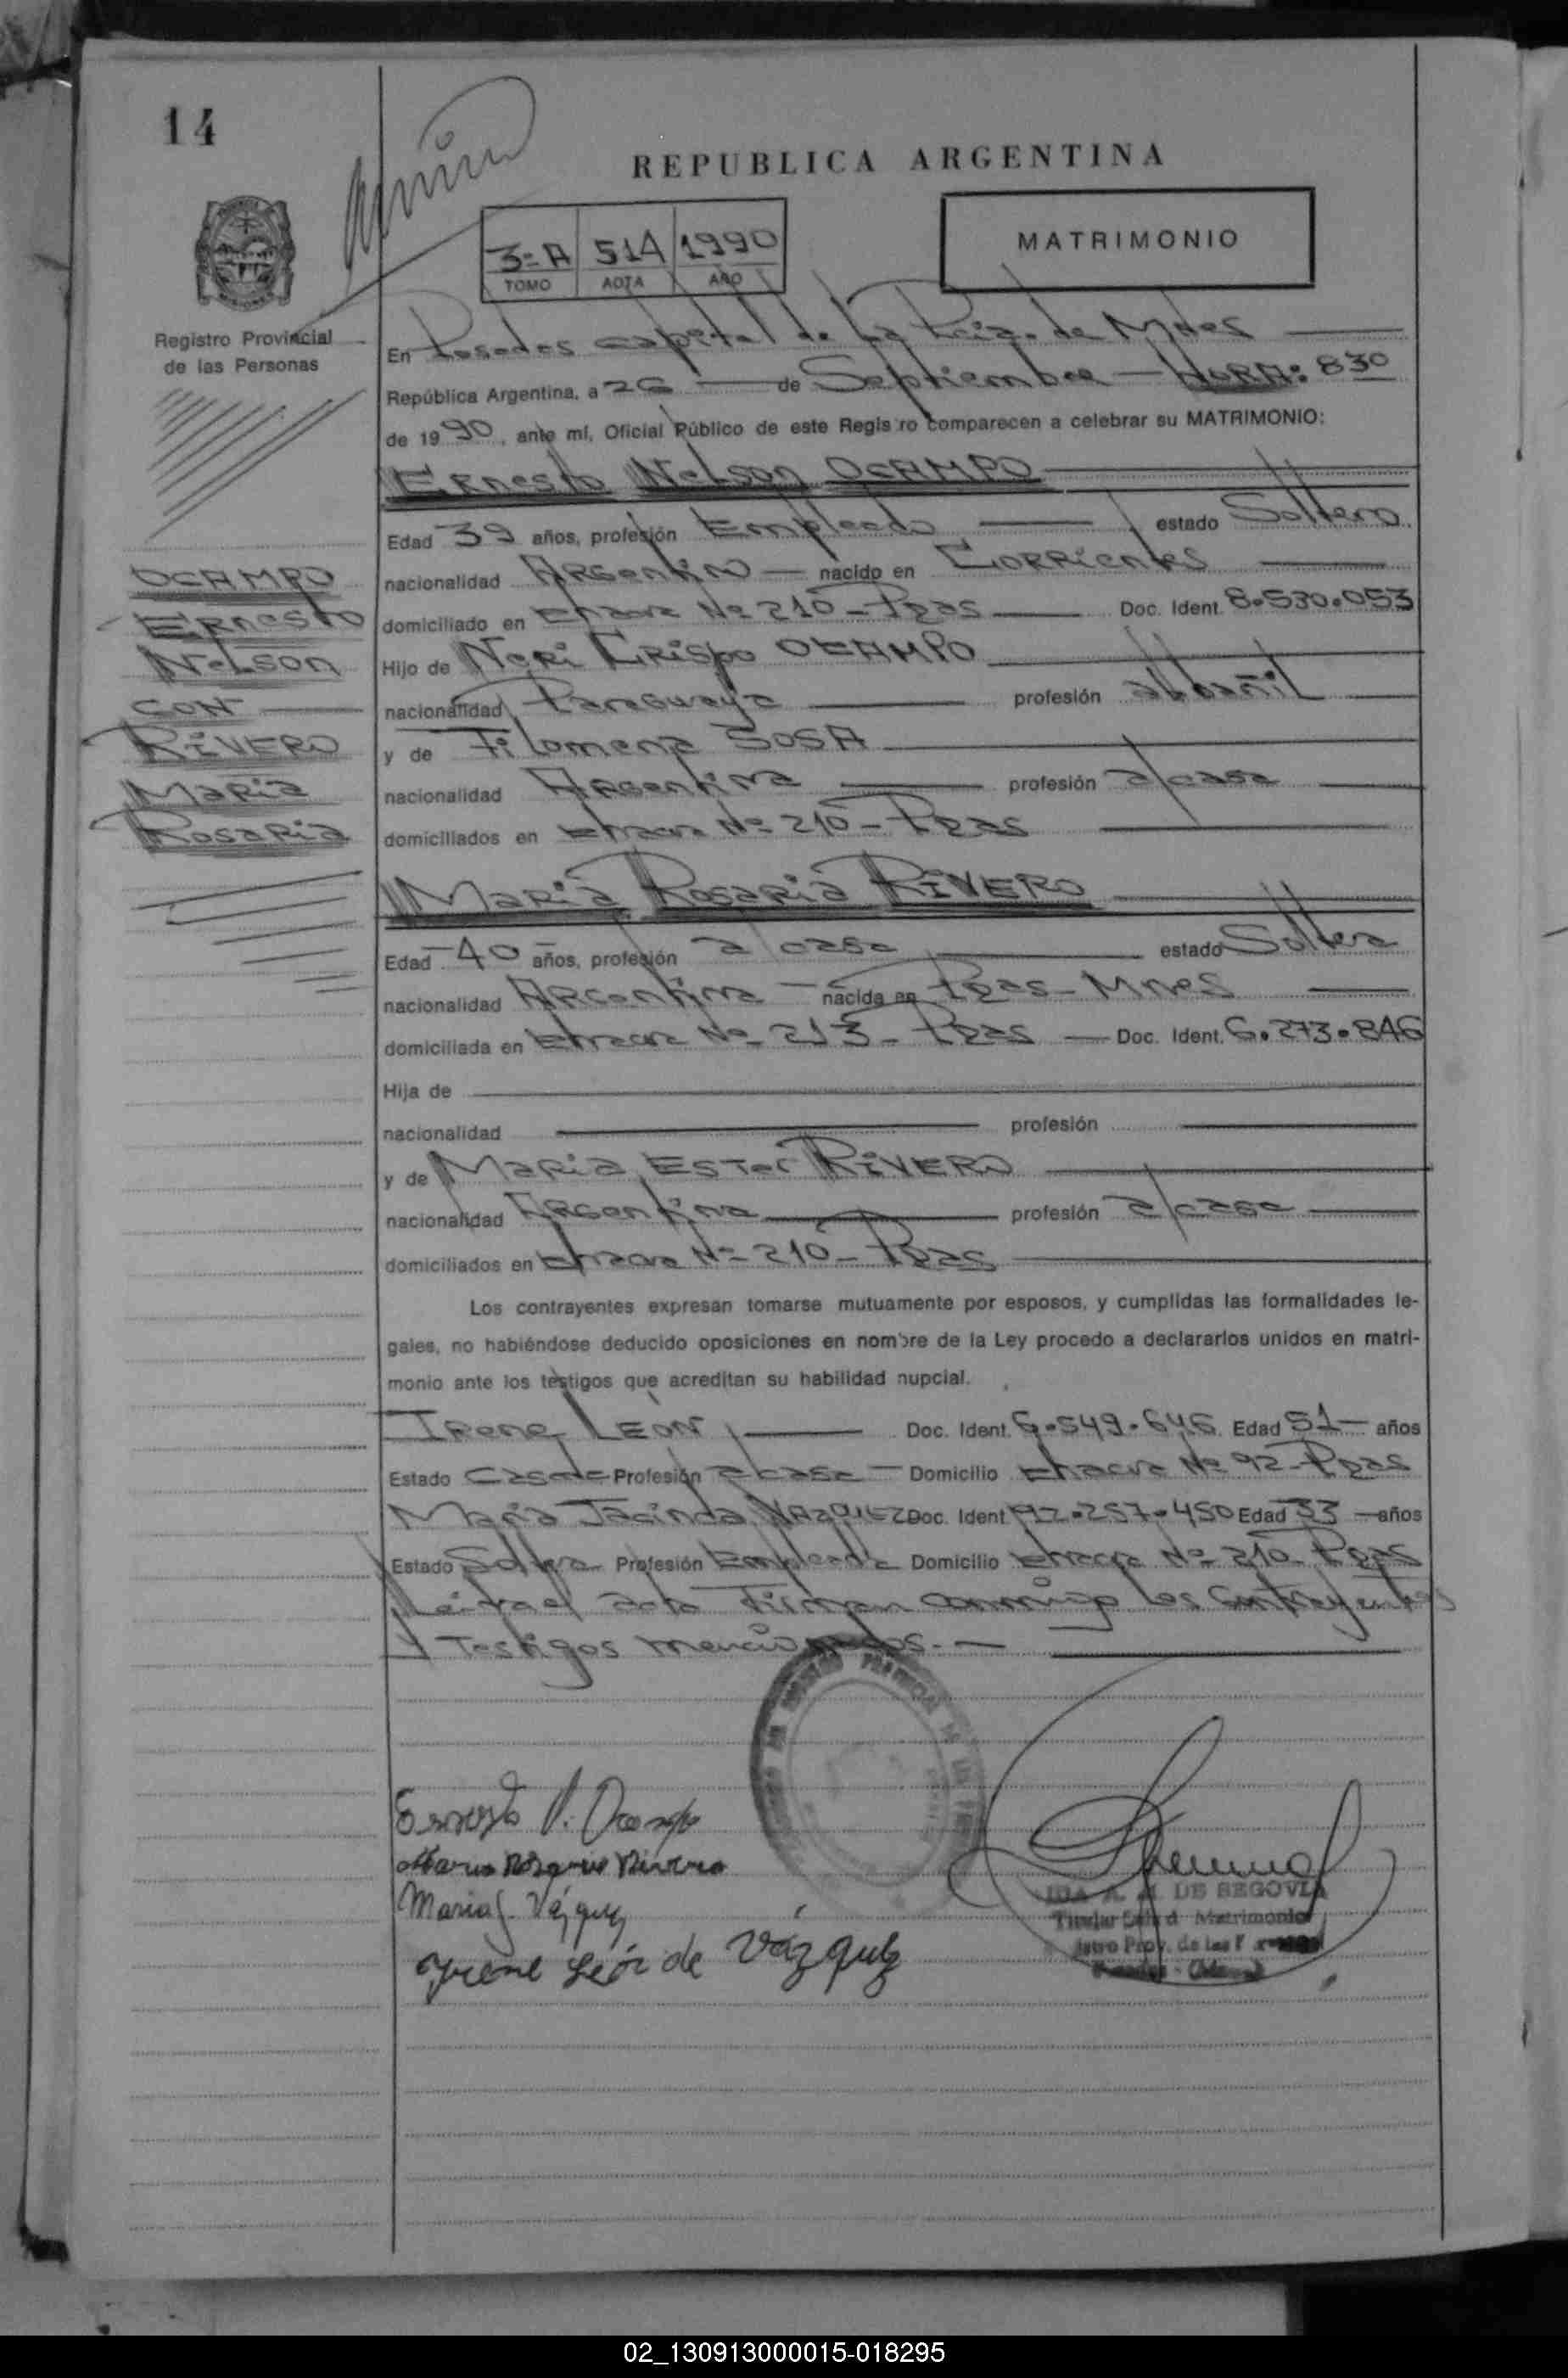 14
REPUBLICA ARGENTINA
3=A 514 1990
TOMO ACTA AÑO
MATRIMONIO
Registro Provincial
de las Personas
En Posadas capital de la Pcia. de Mnes
República Argentina, a 26 de Septiembre — HORA: 830
de 1990, ante mí, Oficial Público de este Registro comparecen a celebrar su MATRIMONIO:
Ernesto Nelson OCAMPO
Edad 39 años, profesión Empleado estado Soltero
nacionalidad Argentino — nacido en Corrientes
domiciliado en Chacra Nº 210 - Pdas Doc. Ident. 8.530.053
Hijo de Neri Crispo OCAMPO
nacionalidad Paraguaya profesión albañil
y de Filomena SOSA
nacionalidad Argentina profesión a/casa
domiciliados en Chacra Nº 210 - Pdas
OCAMPO
Ernesto
Nelson
CON
RIVERO
Maria
Rosaria
Maria Rosaria RIVERO
Edad 40 años, profesión a/casa estado Soltera
nacionalidad Argentina — nacida en Pdas - Mnes
domiciliada en Chacra Nº 213 - Pdas — Doc. Ident. 6.273.846
Hija de
nacionalidad profesión
y de Maria Ester RIVERO
nacionalidad Argentina profesión a/casa
domiciliados en Chacra Nº 210 - Pdas
Los contrayentes expresan tomarse mutuamente por esposos, y cumplidas las formalidades le-
gales, no habiéndose deducido oposiciones en nombre de la Ley procedo a declararlos unidos en matri-
monio ante los testigos que acreditan su habilidad nupcial.
Irene LEON Doc. Ident. 6.549.646 Edad 51 — años
Estado Casada Profesión a/casa — Domicilio Chacra Nº 92 - Pdas
Maria Jacinda VAZQUEZ Doc. Ident. 92.257.450 Edad 33 — años
Estado Soltera Profesión Empleada Domicilio Chacra Nº 210 - Pdas
Leida el acta Firman conmigo los contrayentes
y Testigos mencionados. —
Ernesto N. Ocampo
Maria Rosaria Rivero
Maria J. Vázquez
Irene León de Vázquez
IDA A. DE SEGOVIA
Titular Matrimonios
Prov. de las
02_130913000015-018295